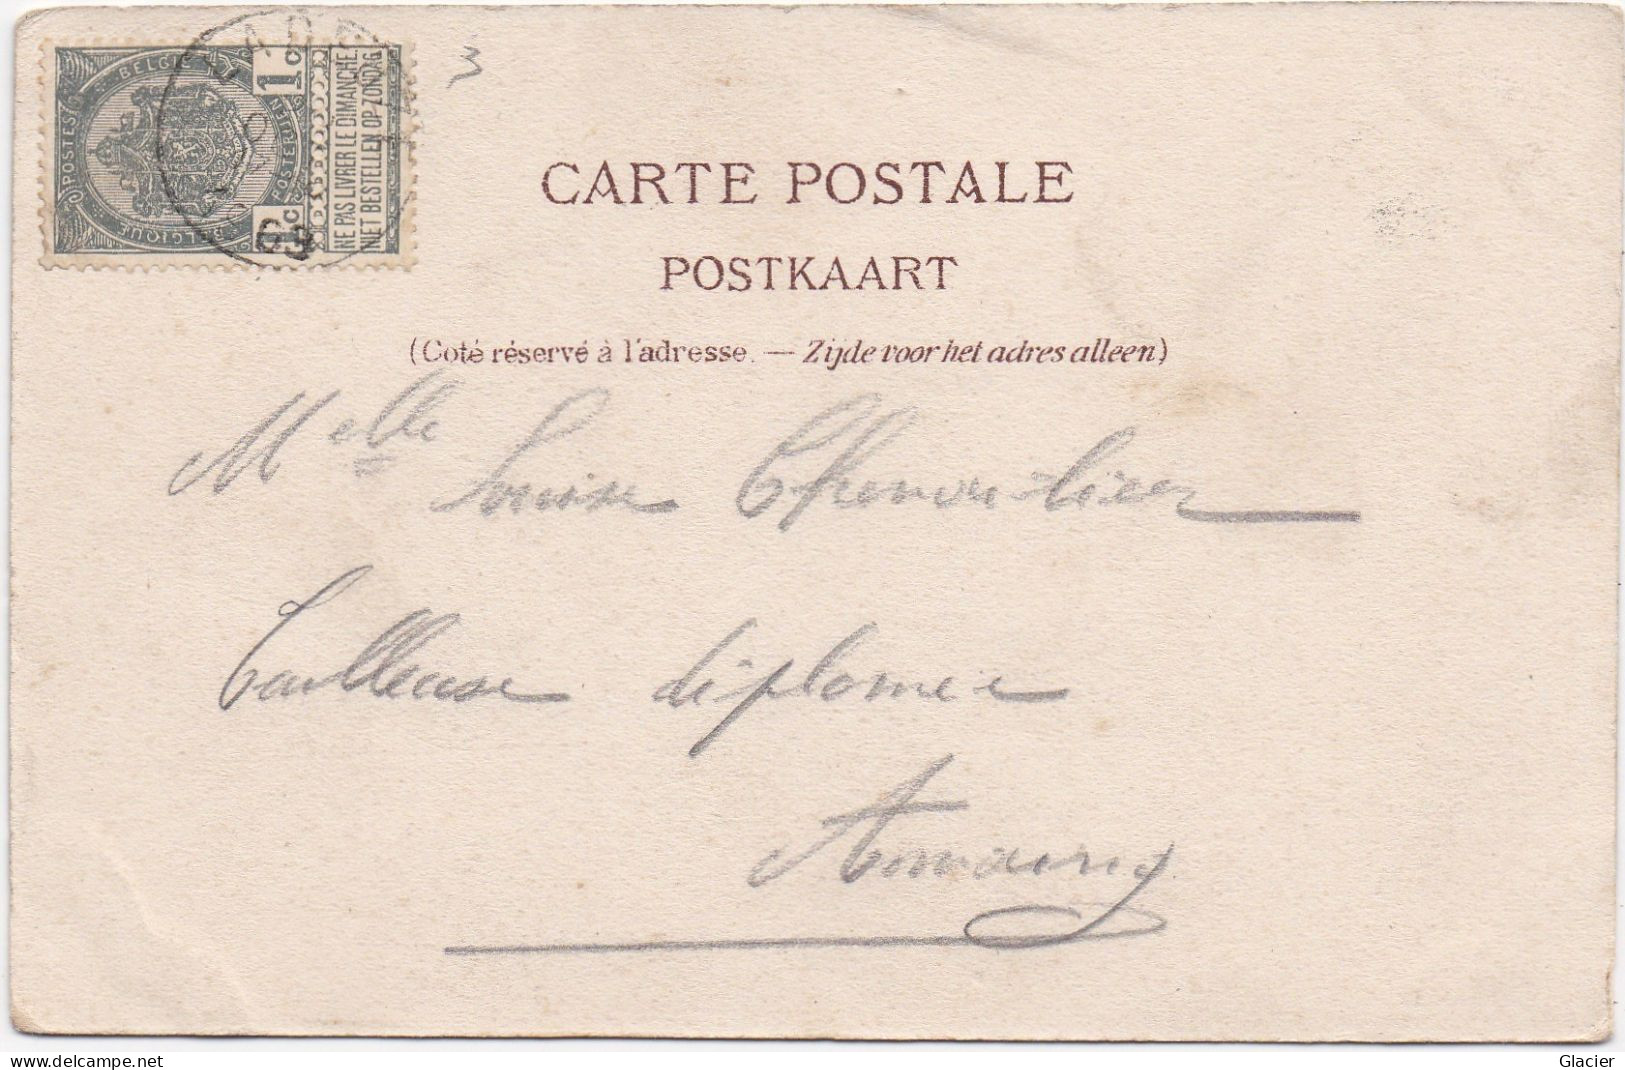 POSTES BELGIE POSTERIJEN BELGIQUE
1c
NE PAS LIVRER LE DIMANCHE
NIET BESTELLEN OP ZONDAG
3
CARTE POSTALE
POSTKAART
(Coté réservé à l'adresse. — Zijde voor het adres alleen)
Melle Louise Chevalier
Tailleuse diplomée
Amaing
www.delcampe.net
Glacier